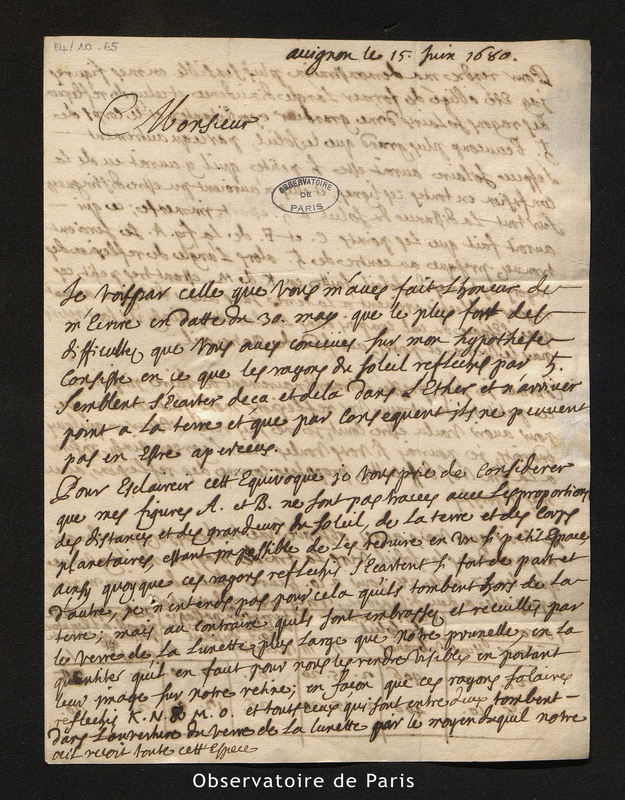 B4/10-65
avignon le 15. Juin 1680.
Monsieur
OBSERVATOIRE
DE
PARIS
Je voy par celle que vous m'aves fait l'honeur de
m'Ecrire en datte du 30. may que le plus fort des
difficultez que vous aves conceues sur mon hypothese
Consiste en ce que les rayons du soleil reflechis par 5.
semblent s'Ecarter deca et dela dans l'Ether et n'arriver
point a La terre et que par Consequent ils ne peuvent
pas en Estre aperceus.
Pour Esclaircir cett'Equivoque je vous prie de Considerer
que mes figures A. et B. ne sont pas tracees avec Les proportions
des distances et des grandeurs du soleil, de La terre et des corps
planetaires, estant impossible de Les reduire en un si petit Espace
ainsy quoyque ces rayons reflechis s'Ecartent si fort de part et
d'autre, je n'entends pas pour cela qu'ils tombent hors de la
terre; mais au contraire qu'ils sont embrassez et recueillis par
le verre de La Lunette plus Large que notre prunelle, en La
quantité qu'il en faut pour nous les rendre visibles en portant
leur image sur notre retine; en facon que ces rayons solaires
reflechis K. N. & M. O. et touts ceux qui sont entre deux tombent
dans L'ouverture du verre de La lunette par le moyen duquel notre
œil recoit toute cett'Espece
Observatoire de Paris